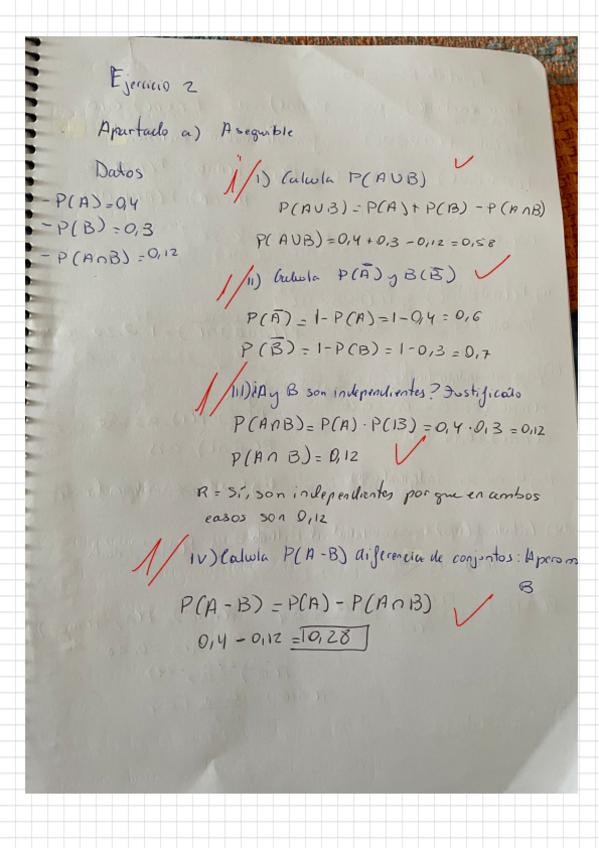 Ejercicio 2
Apartado a) Asequible
Datos
- P(A)=0,4
- P(B)=0,3
- P(A∩B)=0,12
1/ i) Calcula P(A∪B)
P(A∪B)=P(A)+P(B)-P(A∩B)
P(A∪B)=0,4+0,3-0,12=0,58
1/ ii) Calcula P(Ā) y B(B̄)
P(Ā)=1-P(A)=1-0,4=0,6
P(B̄)=1-P(B)=1-0,3=0,7
1/ iii) ¿A y B son independientes? Justificalo
P(A∩B)=P(A)·P(B)=0,4·0,3=0,12
P(A∩B)=0,12
R= Sí, son independientes por que en ambos
casos son 0,12
1/ iv) Calcula P(A-B) diferencia de conjuntos: A pero n
B
P(A-B)=P(A)-P(A∩B)
0,4-0,12=0,28